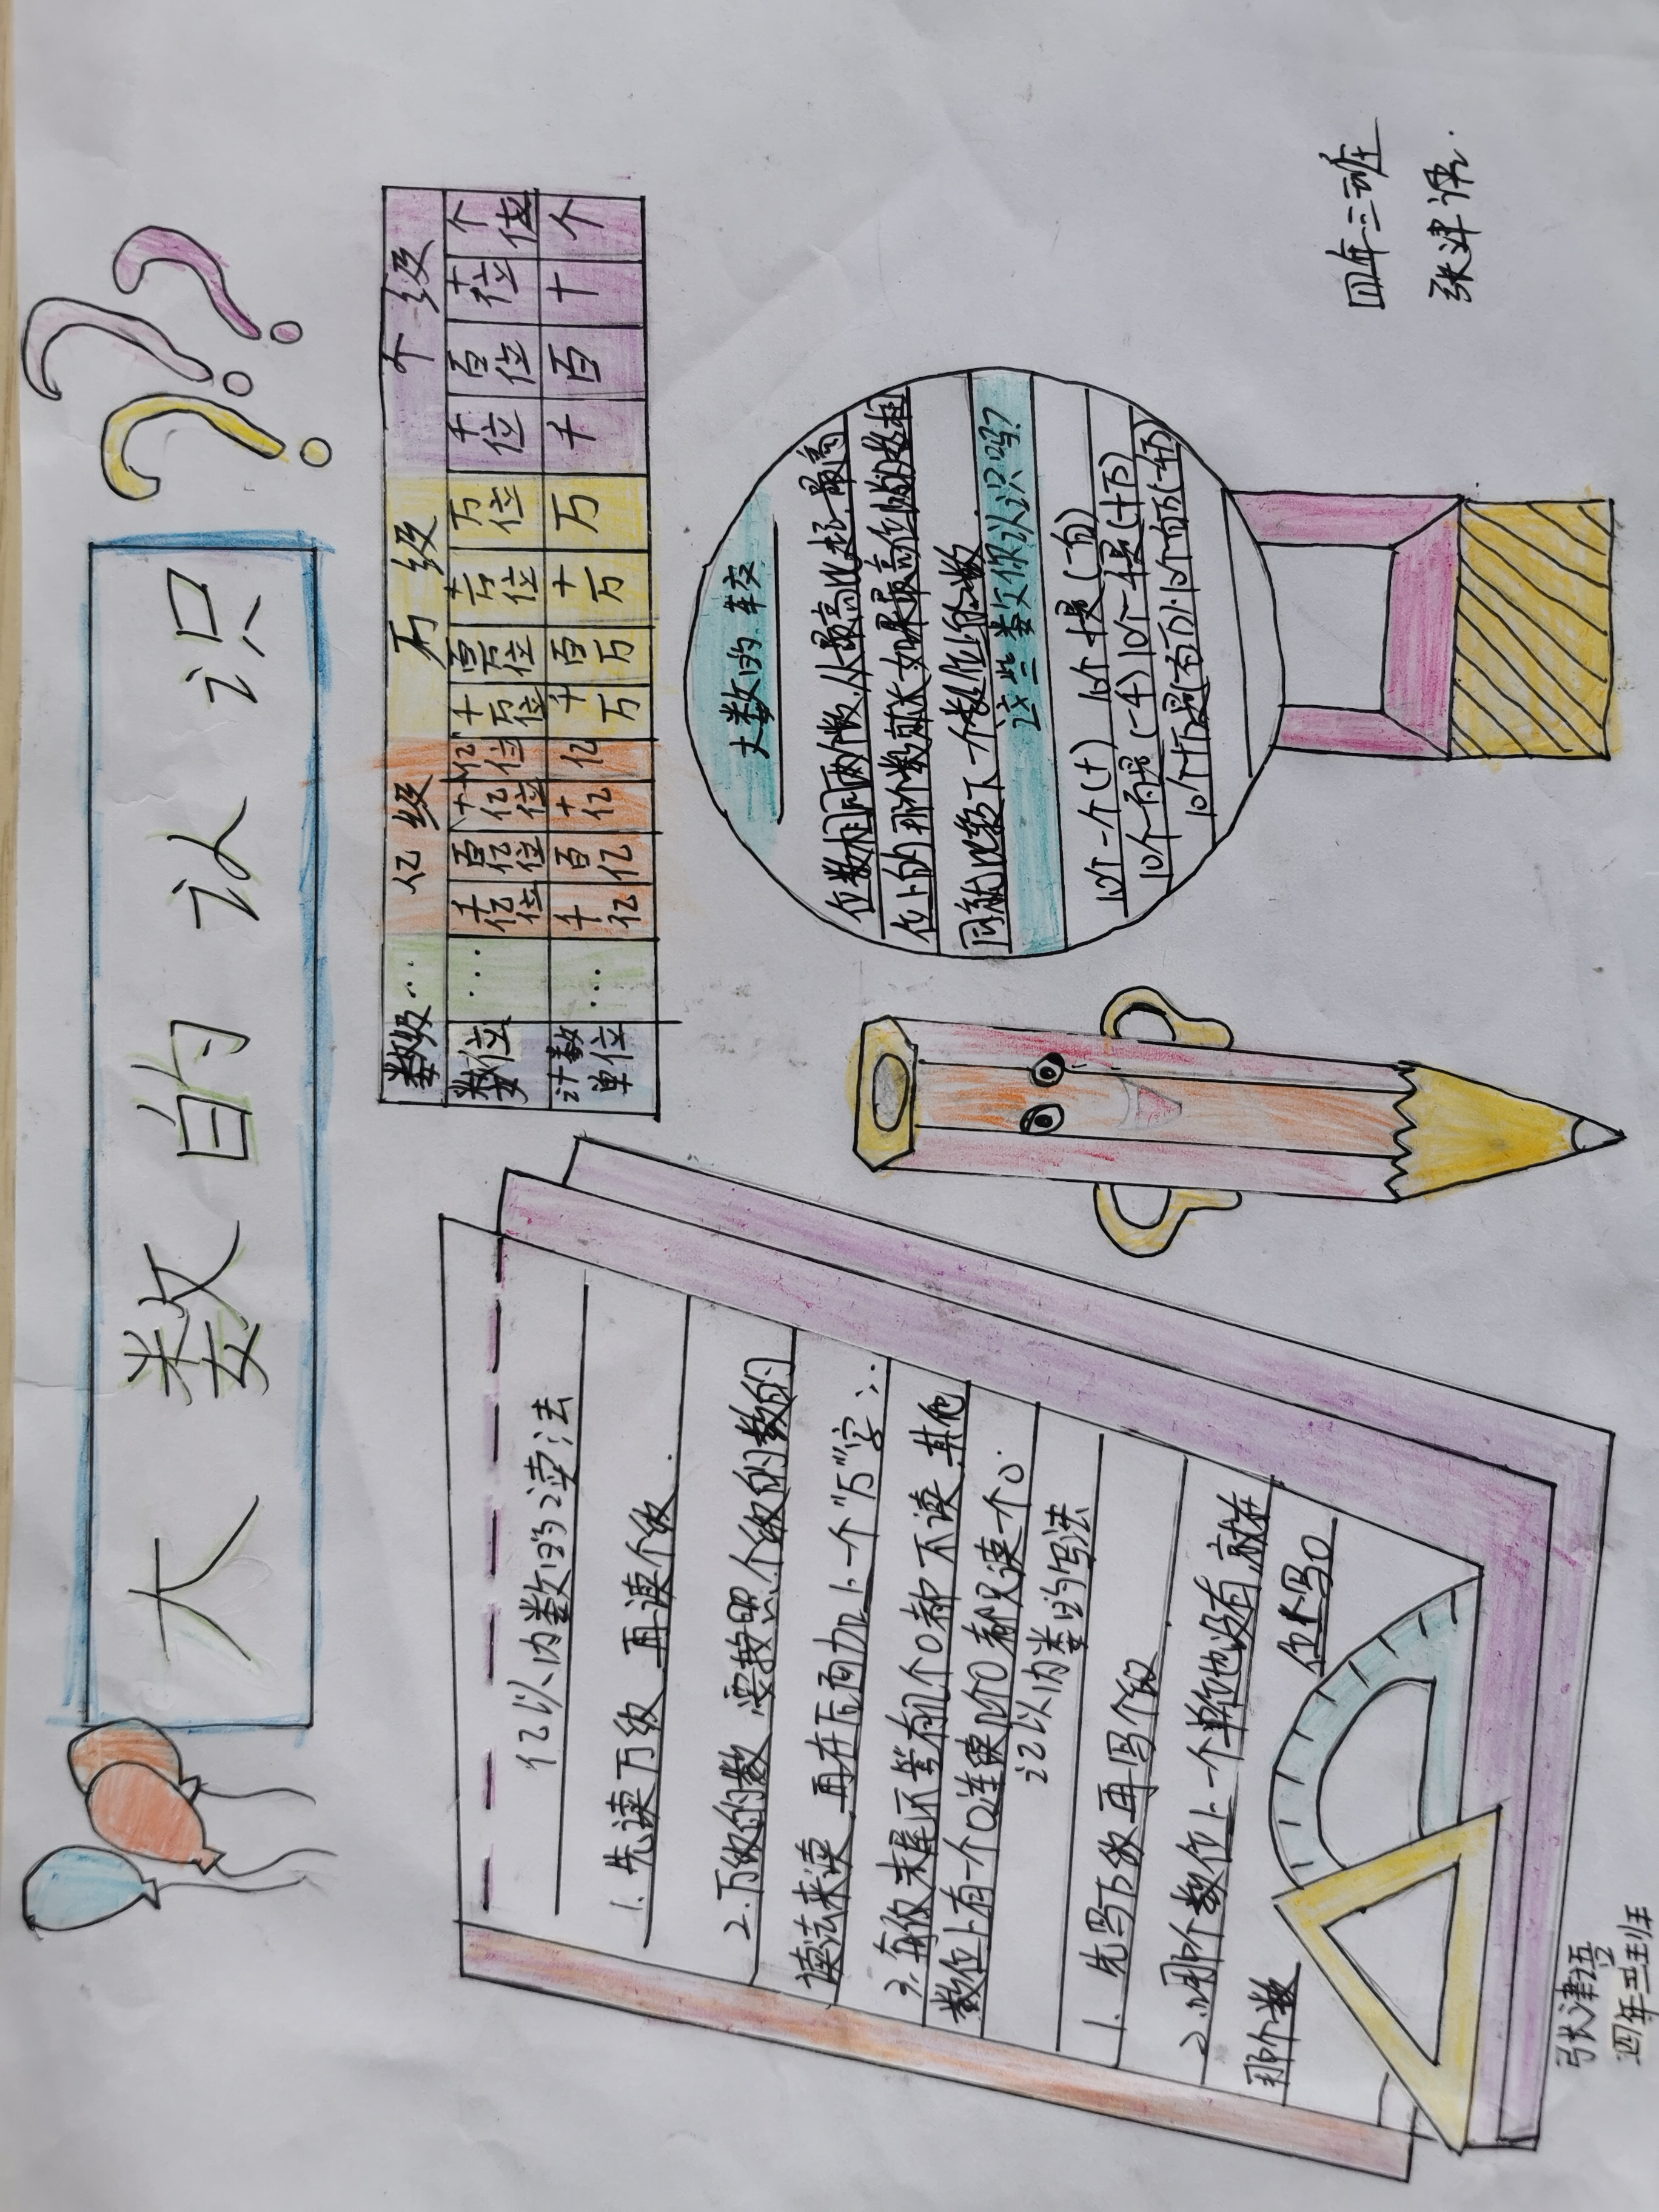 大数的认识
数级 … 亿级 万级 个级
数位 … 千亿位 百亿位 十亿位 亿位 千万位 百万位 十万位 万位 千位 百位 十位 个位
计数单位 … 千亿 百亿 十亿 亿 千万 百万 十万 万 千 百 十 个
亿以内数的读法
1.先读万级 再读个级.
2.万级的数 要按照个级的数的
读法来读 再在后面加上一个"万"字
3.每级末尾不管有几个0都不读 其他
数位上有一个0连续几个0都只读一个0.
亿以内数的写法
1.先写万级再写个级
2.哪个数位上一个单位也没有,就在
那个数位上写0
大数的比较
位数相同两个数从最高比起最高
位上的那个数就大如果最高位上的数相
同就比较下一个数位的数
这些数文你认识吗?
10个一个(十) 10个十是(一百)
10个一百是(一千)10个一千是(十万)
四年三班
张津语.
张津语
四年三班